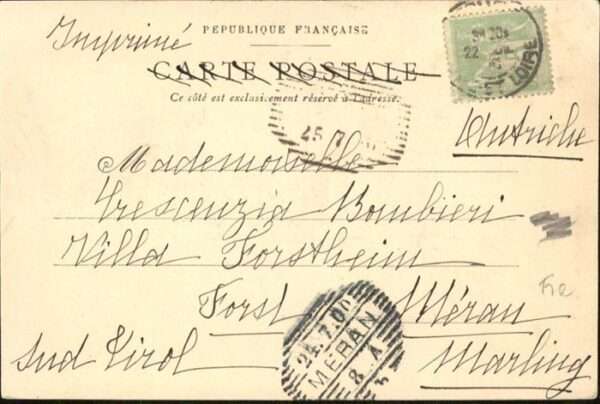 Imprimé
REPUBLIQUE FRANÇAISE
CARTE POSTALE
Ce côté est exclusivement réservé à l'adresse.
22
LOIRE
45
Autriche
Mademoiselle
Crescenzia Bombieri
Villa Forstheim
Forst Méran
Sud Tirol Marling
24.7.00
MERAN
8.A